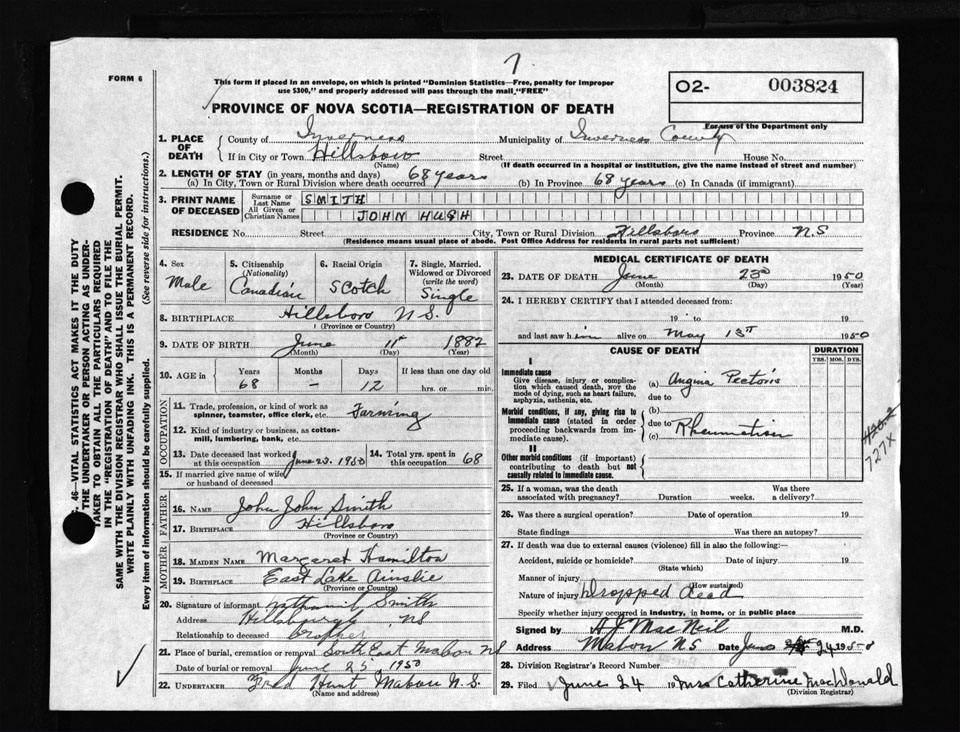 7
FORM 6
This form if placed in an envelope, on which is printed "Dominion Statistics—Free, penalty for improper
use $300," and properly addressed will pass through the mail, "FREE"
PROVINCE OF NOVA SCOTIA—REGISTRATION OF DEATH
O2- 003824
For use of the Department only
1. PLACE OF DEATH
County of Inverness Municipality of Inverness County
If in City or Town Hillsboro Street House No.
(Name) (If death occurred in a hospital or institution, give the name instead of street and number)
2. LENGTH OF STAY (in years, months and days) 68 years
(a) In City, Town or Rural Division where death occurred (b) In Province 68 years (c) In Canada (if immigrant)
3. PRINT NAME OF DECEASED
Surname or Last Name SMITH
All Given or Christian Names JOHN HUGH
RESIDENCE No. Street City, Town or Rural Division Hillsboro Province N.S
(Residence means usual place of abode. Post Office Address for residents in rural parts not sufficient)
4. Sex Male
5. Citizenship (Nationality) Canadian
6. Racial Origin Scotch
7. Single, Married, Widowed or Divorced (write the word) Single
8. BIRTHPLACE Hillsboro N.S.
(Province or Country)
9. DATE OF BIRTH June 11th 1882
(Month) (Day) (Year)
10. AGE in Years Months Days If less than one day old
68 – 12 hrs. or min.
OCCUPATION
11. Trade, profession, or kind of work as
spinner, teamster, office clerk, etc. Farming
12. Kind of industry or business, as cotton-
mill, lumbering, bank, etc.
13. Date deceased last worked at this occupation June 23. 1950
14. Total yrs. spent in this occupation 68
15. If married give name of wife
or husband of deceased
FATHER
16. NAME John John Smith
17. BIRTHPLACE Hillsboro
(Province or Country)
MOTHER
18. MAIDEN NAME Margaret Hamilton
19. BIRTHPLACE East Lake Ainslie
(Province or Country)
20. Signature of informant Nathaniel Smith
Address Hillsburgh NS
Relationship to deceased brother
21. Place of burial, cremation or removal South East Mabou NS
Date of burial or removal June 25 1950
22. UNDERTAKER Fred Hunt Mabou N.S.
(Name and address)
MEDICAL CERTIFICATE OF DEATH
23. DATE OF DEATH June 23rd 1950
(Month) (Day) (Year)
24. I HEREBY CERTIFY that I attended deceased from:
19 to 19
and last saw him alive on May 13th 1950
CAUSE OF DEATH
DURATION
YRS. MOS. DYS.
I
Immediate cause
Give disease, injury or complica-
tion which caused death, NOT the
mode of dying, such as heart failure,
asphyxia, asthenia, etc.
(a) Angina Pectoris
due to
Morbid conditions, if any, giving rise to
immediate cause (stated in order
proceeding backwards from im-
mediate cause).
(b)
due to
(c) Rheumatism
II
Other morbid conditions (if important)
contributing to death but not
causally related to immediate cause.
420.2
727X
25. If a woman, was the death Was there
associated with pregnancy? Duration weeks. a delivery?
26. Was there a surgical operation? Date of operation 19
State findings Was there an autopsy?
27. If death was due to external causes (violence) fill in also the following:—
Accident, suicide or homicide? Date of injury 19
(State which)
Manner of injury
(How sustained)
Nature of injury Dropped dead
Specify whether injury occurred in industry, in home, or in public place
Signed by H J MacNeil M.D.
Address Mabou N.S Date June 24 1950
28. Division Registrar's Record Number
29. Filed June 24 19 Mrs Catherine MacDonald
(Division Registrar)
46—VITAL STATISTICS ACT MAKES IT THE DUTY
THE UNDERTAKER OR PERSON ACTING AS UNDER-
TAKER TO OBTAIN ALL THE PARTICULARS REQUIRED
IN THE "REGISTRATION OF DEATH" AND TO FILE THE
SAME WITH THE DIVISION REGISTRAR WHO SHALL ISSUE THE BURIAL PERMIT.
WRITE PLAINLY WITH UNFADING INK. THIS IS A PERMANENT RECORD.
Every item of information should be carefully supplied. (See reverse side for instructions.)